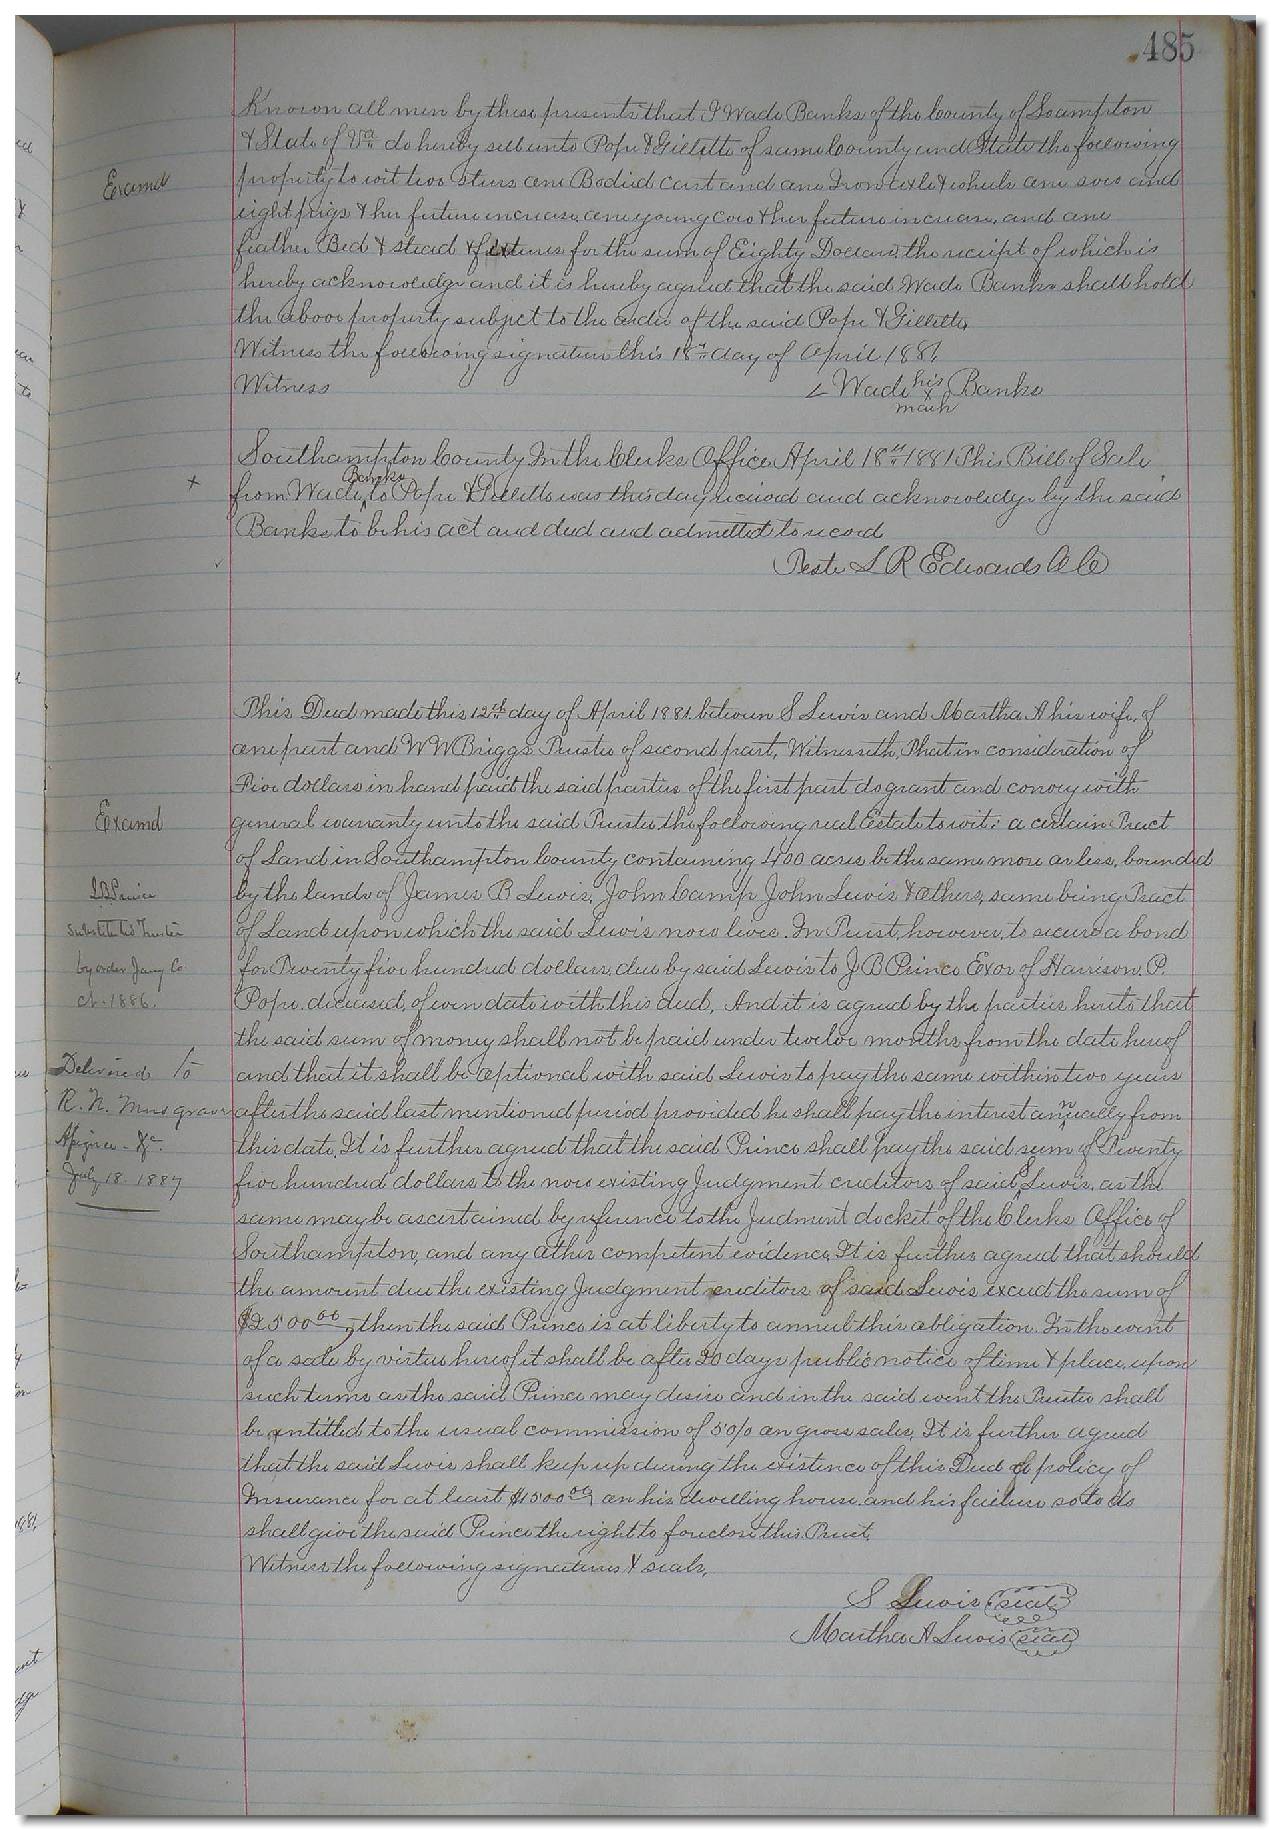 485
Known all men by these presents that I Wade Banks of the County of Soampton
& State of Va do hereby sell unto Pope & Gillette of same County and State the following
Examd
property to wit two stears one Bodied cart and one Iron axle & wheels one sow and
eight pigs & her future increase, one young cow & her future increase, and one
feather Bed & stead & fixtures for the sum of Eighty Dollars, the receipt of which is
hereby acknowledge and it is hereby agreed that the said Wade Banks shall hold
the above property subject to the order of the said Pope & Gillette,
Witness the following signature this 18th day of April 1881,
Witness Wade his x mark Banks
Southampton County In the Clerks Office April 18th 1881 This Bill of Sale
x
from Wade Banks to Pope & Gillette was this day received and acknowledge by the said
Banks to be his act and deed and admitted to record
Teste L R Edwards C C
This Deed made this 12th day of April 1881, between S Lewis and Martha A his wife, of
one part and W W Briggs Trustee of second part, Witnesseth, That in consideration of
Five dollars in hand paid the said parties of the first part do grant and convey with
Examd
general warranty unto the said Trustee the following real Estate to wit: a certain Tract
of Land in Southampton County containing 400 acres be the same more or less, bounded
by the lands of James B Lewis, John Camp John Lewis & others, same being Tract
of Land upon which the said Lewis now lives. In Trust, however, to secure a bond
for Twenty five hundred dollars, due by said Lewis to J B Prince Exor of Harrison P.
Pope, deceased, of even date with this deed, And it is agreed by the parties hereto that
the said sum of money shall not be paid under twelve months from the date hereof
and that it shall be optional with said Lewis to pay the same within two years
after the said last mentioned period provided he shall pay the interest annually from
this date, It is further agreed that the said Prince shall pay the said sum of Twenty
five hundred dollars to the now existing Judgment creditors of said S Lewis, as the
same may be ascertained by reference to the Judment docket of the Clerks Office of
Southampton, and any other competent evidence, It is further agreed that should
the amount due the existing Judgment creditors of said Lewis exceed the sum of
$2500 00, then the said Prince is at liberty to annul this obligation. In the event
of a sale by virtue hereof it shall be after 20 days public notice of time & place, upon
such terms as the said Prince may desire and in the said event the Trustee shall
be entitled to the usual commission of 5% on gross sales, It is further agreed
that the said Lewis shall keep up during the existence of this Deed a policy of
Insurance for at least $1500 00, on his dwelling house and his failure so to do
shall give the said Prince the right to foreclose this Trust.
Witness the following signatures & seals,
S Lewis (seal)
Martha A Lewis (seal)
substituted Trustee
by order Jany Co
ct. 1886.
Delivered to
R. N. Musgrave
Assignee &c.
July 18. 1887